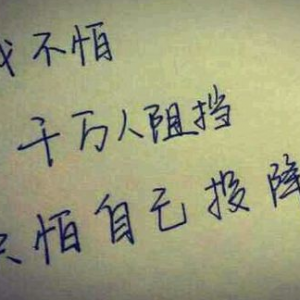 我不怕
千万人阻挡
只怕自己投降